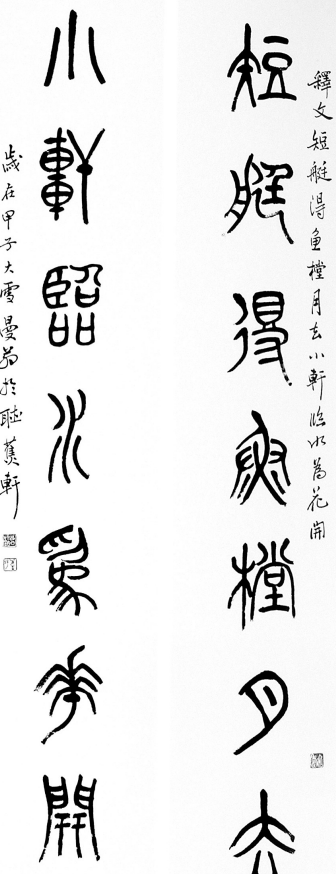 釋文短艇得魚樘月去小軒臨水為花開
短艇得魚樘月去
小軒臨水為花開
歲在甲子大雪曼翁於聽蕉軒